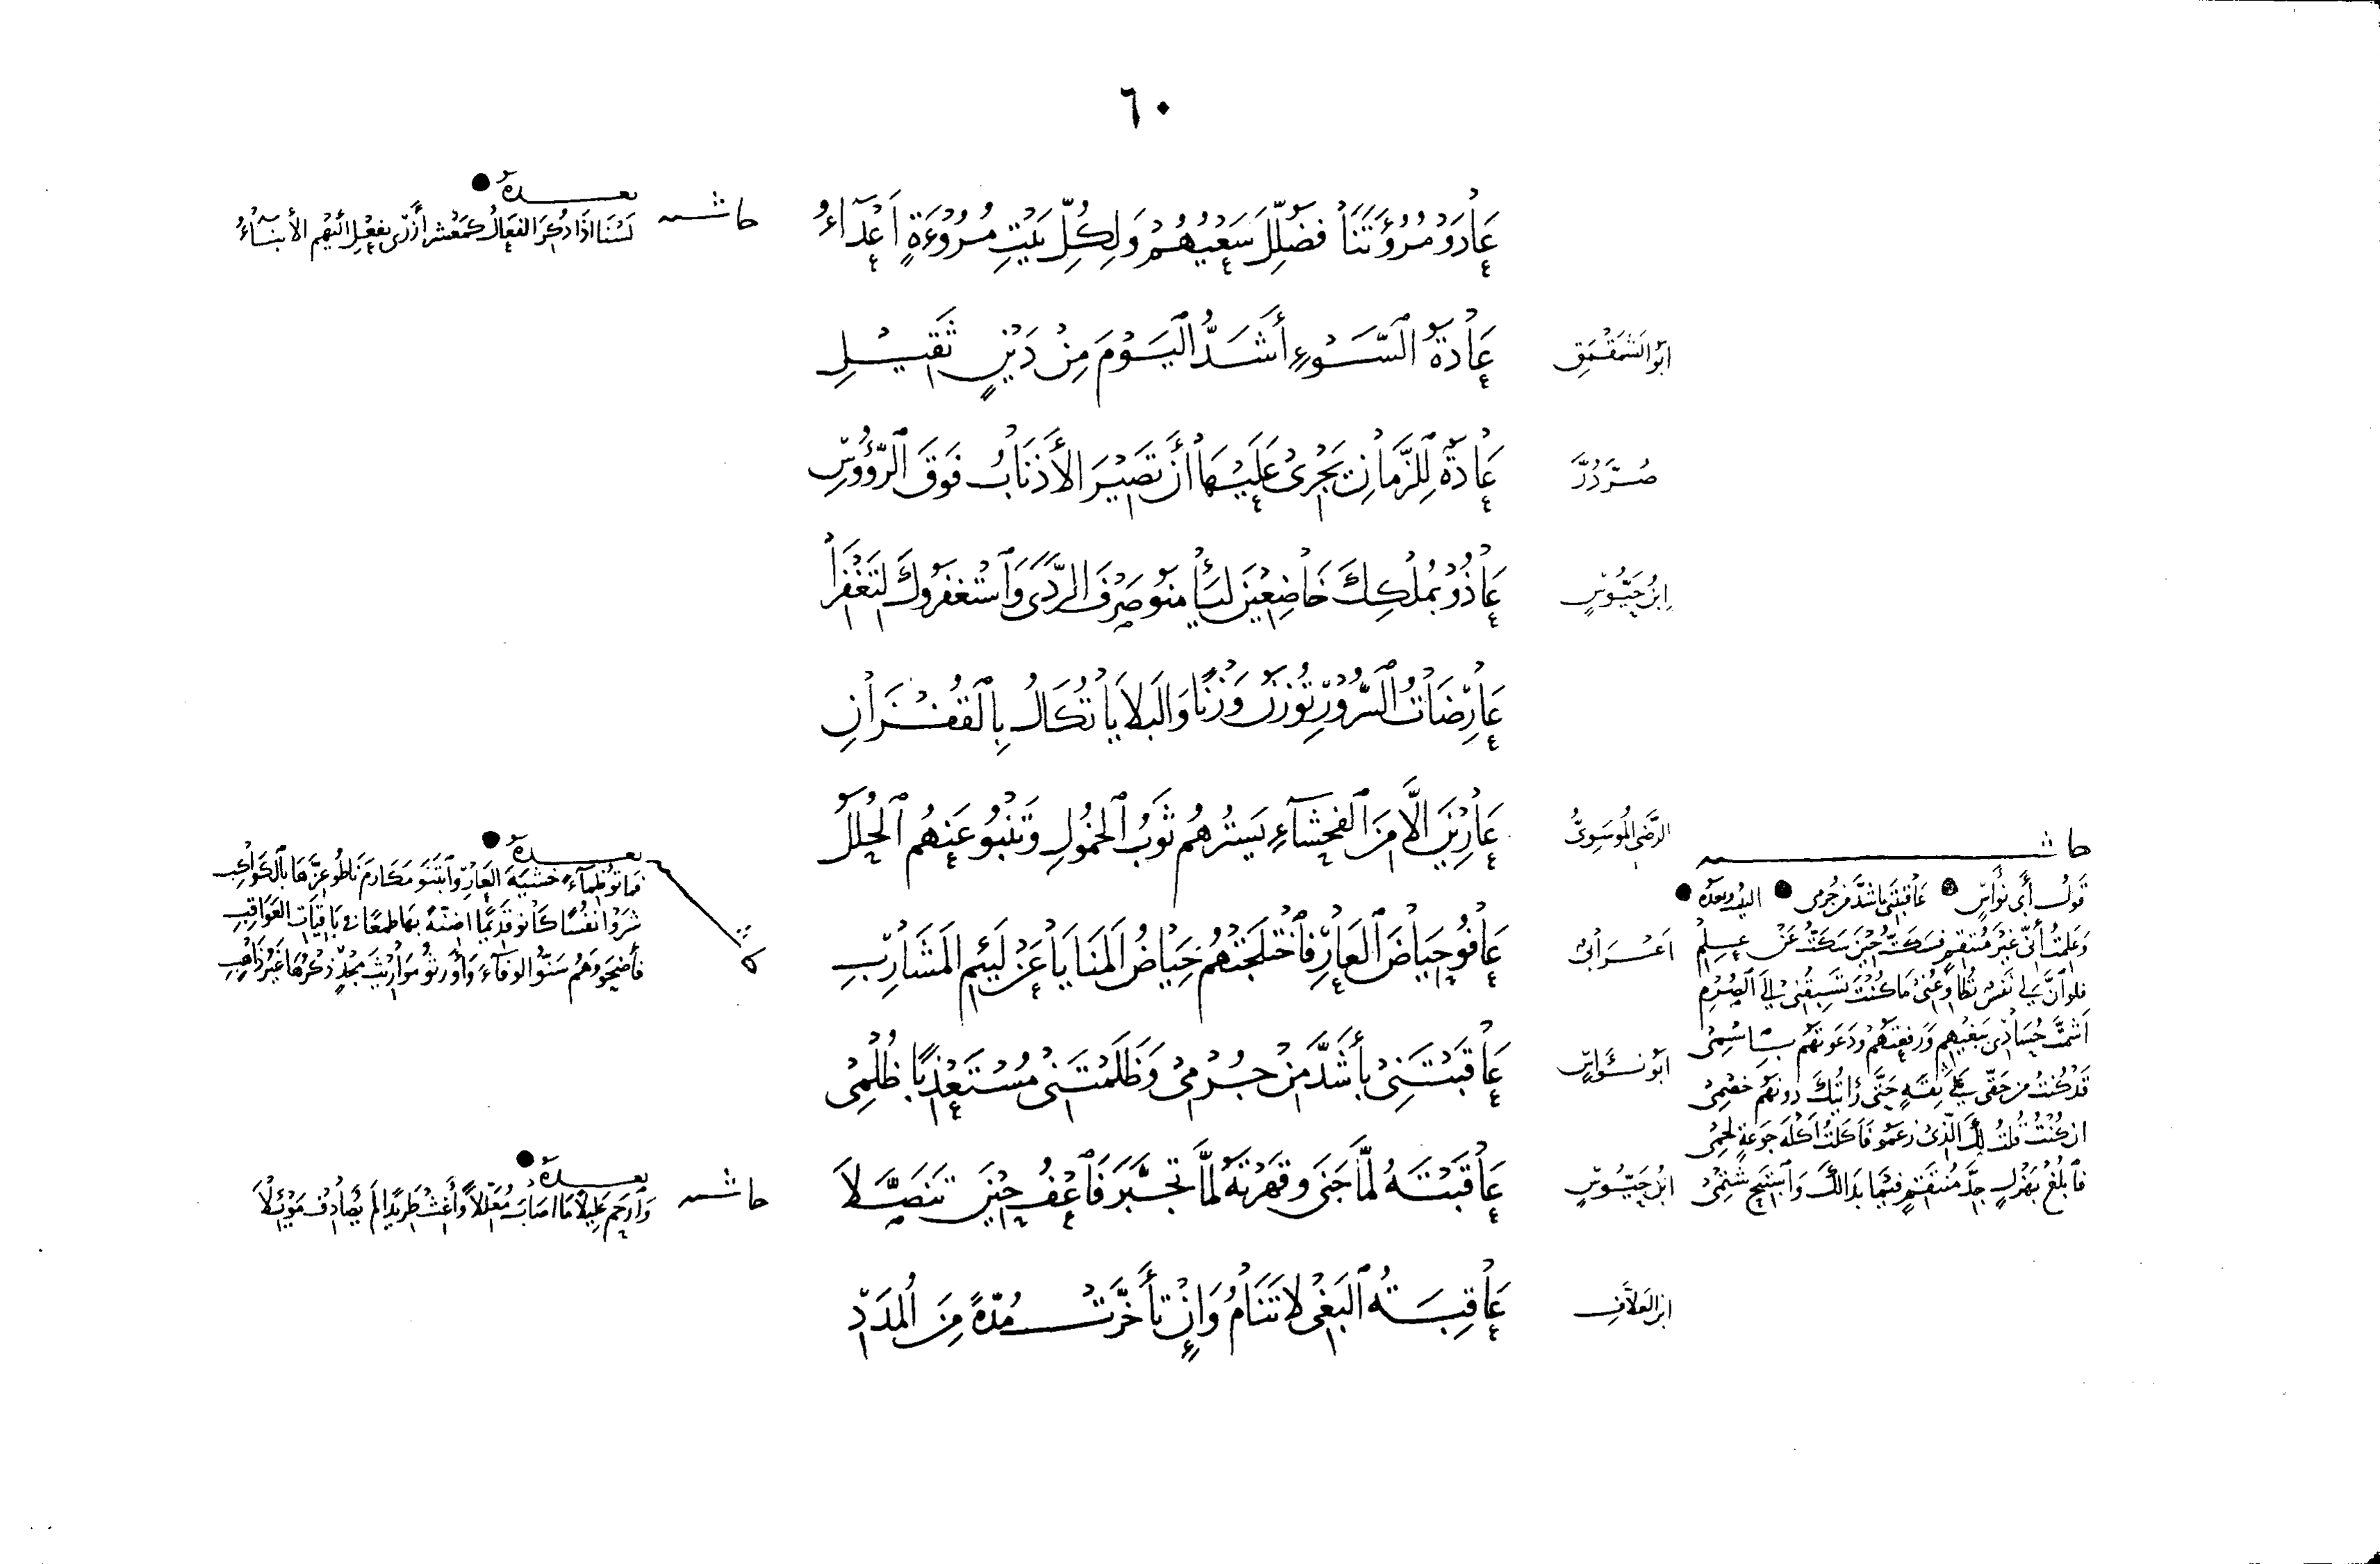 ٦٠
عَادَوْا مُرُوْءَتَنَا فَضُلِّلَ سَعْيُهُمْ وَلِكُلِّ بَيْتِ مُرُوْءَةٍ أَعْدَآءُ
حاشية
بعده
لَسْنَا اذَا ذُكِرَ الفَعَالُ كَمَعْشَرٍ أَزْرَى بفِعْلِ ابيْهِم الأَبنَاءُ
ابُو الشَّمَقْمَقِ
عَادَةُ السَّوْءِ أَشَدُّ اليَوْمَ مِنْ دَيْنٍ ثَقِيْلِ
صُرَّدُرَّ
عَادَةٌ لِلزَّمَانِ يَجْرِىْ عَلَيْهَا أَنْ تَصِيْرَ الأَذنَابُ فَوْقَ الرُّؤُوْسِ
اِبْنُ حَيُّوْسٍ
عَاذُوْا بمُلْكِكَ خَاضِعِيْنَ ليَأْمَنُو صَرْفَ الرَّدَى وَاسْتَغفَرُوكَ لتَغْفِرَا
عَارِضَاتُ السُّرُوْرِ تُوْزَنُ وَزْنًا وَالبَلَايَا تُكَالُ بِالقُفْزَانِ
الرَّضِى المُوسَوِىُّ
عَارِيْنَ الَّا مِنَ الفَحْشَآءِ يَسْتُرُهُم ثَوْبُ الخُمُولِ وَتَنْبُو عَنْهُم الحُلَلُ
اَعْرَابىٌّ
عَافُو حِيَاضَ العَارِ فَاخْتَلَجَتْهُم حِيَاضُ المَنَايَا عَنْ لَئِيْمِ المَشَارِبِ
بعده
فمَاتُو ظِمآءً خشْيَةَ العَارِ وَابتَنَو مَكَارِمَ نَاطُو عِزَّهَا بِالكَوَاكِبِ
شَرَوْا انفُسًا كَانُو قَدِيْمًا اضِنَّةً بهَا طمَعًا فى بَاقِيَاتِ العَوَاقِبِ
فأضحَو وَهُم سَنُّو الوَفآءَ وَأوْرَثُو مَوَارِيْثَ مَجْدٍ ذكرُهَا غَيْرُ ذَاهِبِ
ابُو نُوَاسٍ
عَاقَبْتَنِىْ بأَشَدَّ مِنْ جُرْمِىْ وَظَلَمْتَنِىْ مُسْتَعْذِبًا ظُلْمِىْ
حاشية
قَوْلُ أَبِى نُوَاسٍ عَاقبْتَنِى باشَدَّ مِن جُرمِى البيت وبعده
وَعَلِمْتَ أَنِّى غَيْرُ مُنتَقِمٍ فسَكَتُّ حِيْنَ سَكَتُّ عَنْ عِلْمِ
فلَو انَّ لى نَفْسٌ تُطَاوِعُنِىْ مَا كُنْتَ تَسْبِقُنِىْ الَى الصُّرْمِ
قَدْ كُنْتُ مِن حَقِّى عَلَى ثِقَةٍ حَتَّى رَأيتُكَ دونَهُم خَصْمِىْ
ان كُنْتُ قُلْتُ لَكَ الَّذِىْ زَعَمُو فَأَكَلْتُ أَكْلَةَ جَوعَةٍ لَحمِىْ
فَابْلُغْ بهَزْلٍ جِدَّ مُنْتَقِمٍ فيْمَا بدَا لَكَ وَاسْتبِحْ شَتْمِىْ
ابْنُ حَيُّوْسٍ
عَاقَبْتَهُ لَمَّا جَنَى وَقَهَرْتَهُ لَمَّا تَجَبَّرَ فَاعْفُ حِيْنَ تَنَصَّلَا
حاشية
بعده
وَارحَم عَلِيْلًا مَا اصَابَ مُعَلِّلًا وَأغِثْ طَرِيْدًا لَم يُصَادِفْ مَوْئِلَا
ابن العَلَّافِ
عَاقِبَةُ البَغْىِ لَا تَنَامُ وَإِنْ تَأَخَّرَتْ مُدَّةً مِنَ المُدَدِ